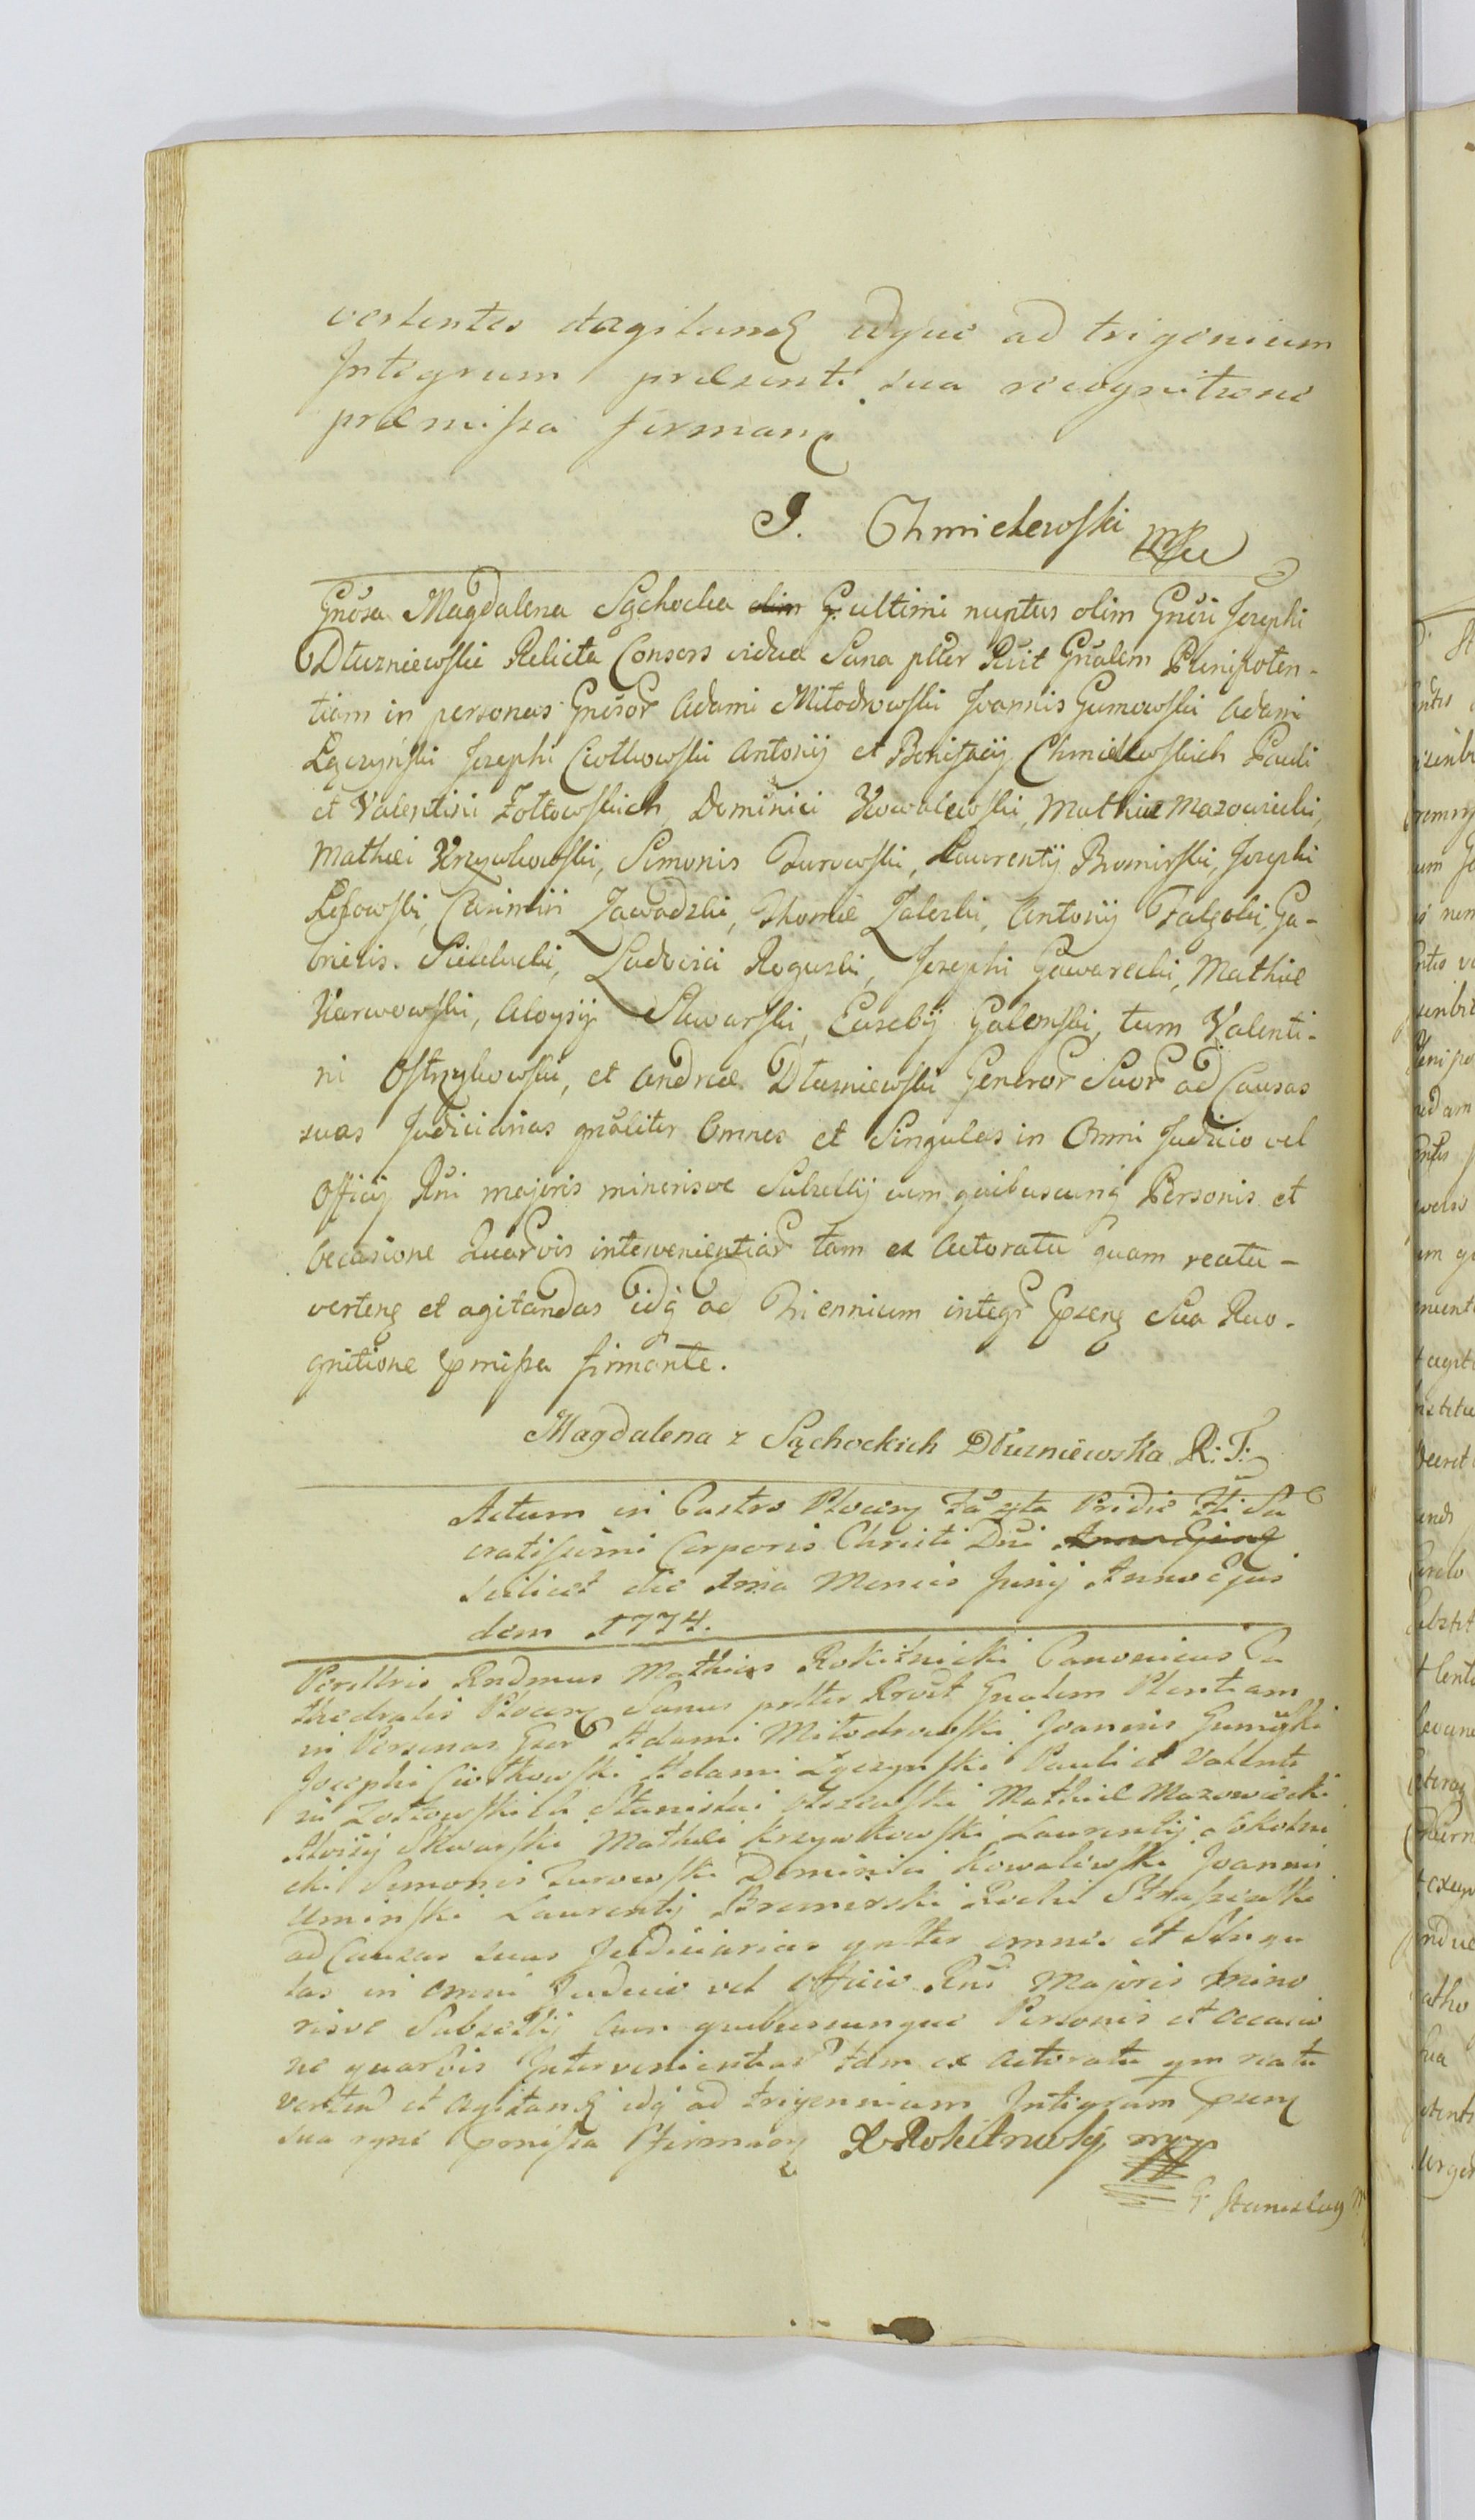 vertentes et agitand idque ad trigenium
Integrum præsenti sua recognitione
præmissa firman
J. Chmielewski mpr
Gnõsa Magdalena Sąchocka olim G. ultimi nuptus olim Gnõsi Josephi
Dłuzniewski Relicta Consors vidua Sana pltter Rvit Gnalem Plenipoten-
tiam in personas Gnõsor Adami Miłodrowski Joannis Gumowski Adami
Łączyński Josephi Ciołkowski Antonij et Bonifacij Chmielewskich Pauli
et Valentini Żołtowskich, Dominici Kowalewski, Mathiæ Mazowiecki,
Mathæi Krzywkowski, Simonis Turowski, Laurentij Bromirski, Josephi
Lissowski, Casimiri Zawadzki, Thomæ Zaleski, Antonij Falęcki, Ga-
brielis Sielclucki, Ludovici Roguski, Josephi Gawarecki, Mathiæ
Karwowski, Aloysij Skwarski, Eusebij Galemski, tum Valenti-
ni Ostrzykowski, et Andreæ Dłuzniewski Generor Suor ad Causas
suas Judiciarias gnãliter Omnes et Singulas in Omni Judicio vel
Officij Rñi majoris minorisve Subsellij cum quibuscunq Personis et
occasione Quarvis intervenientiar tam ex Actoratu quam reatu-
verten et agitandas idq ad Triennium integr pzen Sua Reco-
gnitione pmissa firmante.
Magdalena z Sąchockich Dłuzniewska R. T.
Actum in Castro Plocen Fã 4ta Pridie Fti Sa
cratissimi Corporis Christi Dni Anno Ejusd
Scilicet die 1ma Mensis Junij Anno Ejus
dem 1774.
Perillris Rndmus Mathias Rokitnicki Canonicus Ca
thedralis Plocen Sanus pltter Rvit Gnalem Plentiam
in Personas Gser Adami Miłodrowski Joannis Gumowski
Josephi Ciołkowski Adami Łączynski Pauli et Valenti
ni Zołtowskich Stanislai Mathiæ Mazowiecki
Aloisij Skwarski Mathæi Krzywkowski Laurentij Sokolni
cki Simonis Turowski Dominici Kowalewski Joannis
Uminski Laurentij Bromirski Rochi
ad Causas suas Judiciarias gnlter omnes et Singu
las in omni Judicio vel Officio Rni Majoris mino
risve Subsellij cum quibuscunque Personis et occasio
ne quarvis Intervenientiar tam ex actoratu qm reatu
verten et Agitand idq ad trigennium Integrum pzen
sua rgne pmissa firman X Rokitnicki mp
G.